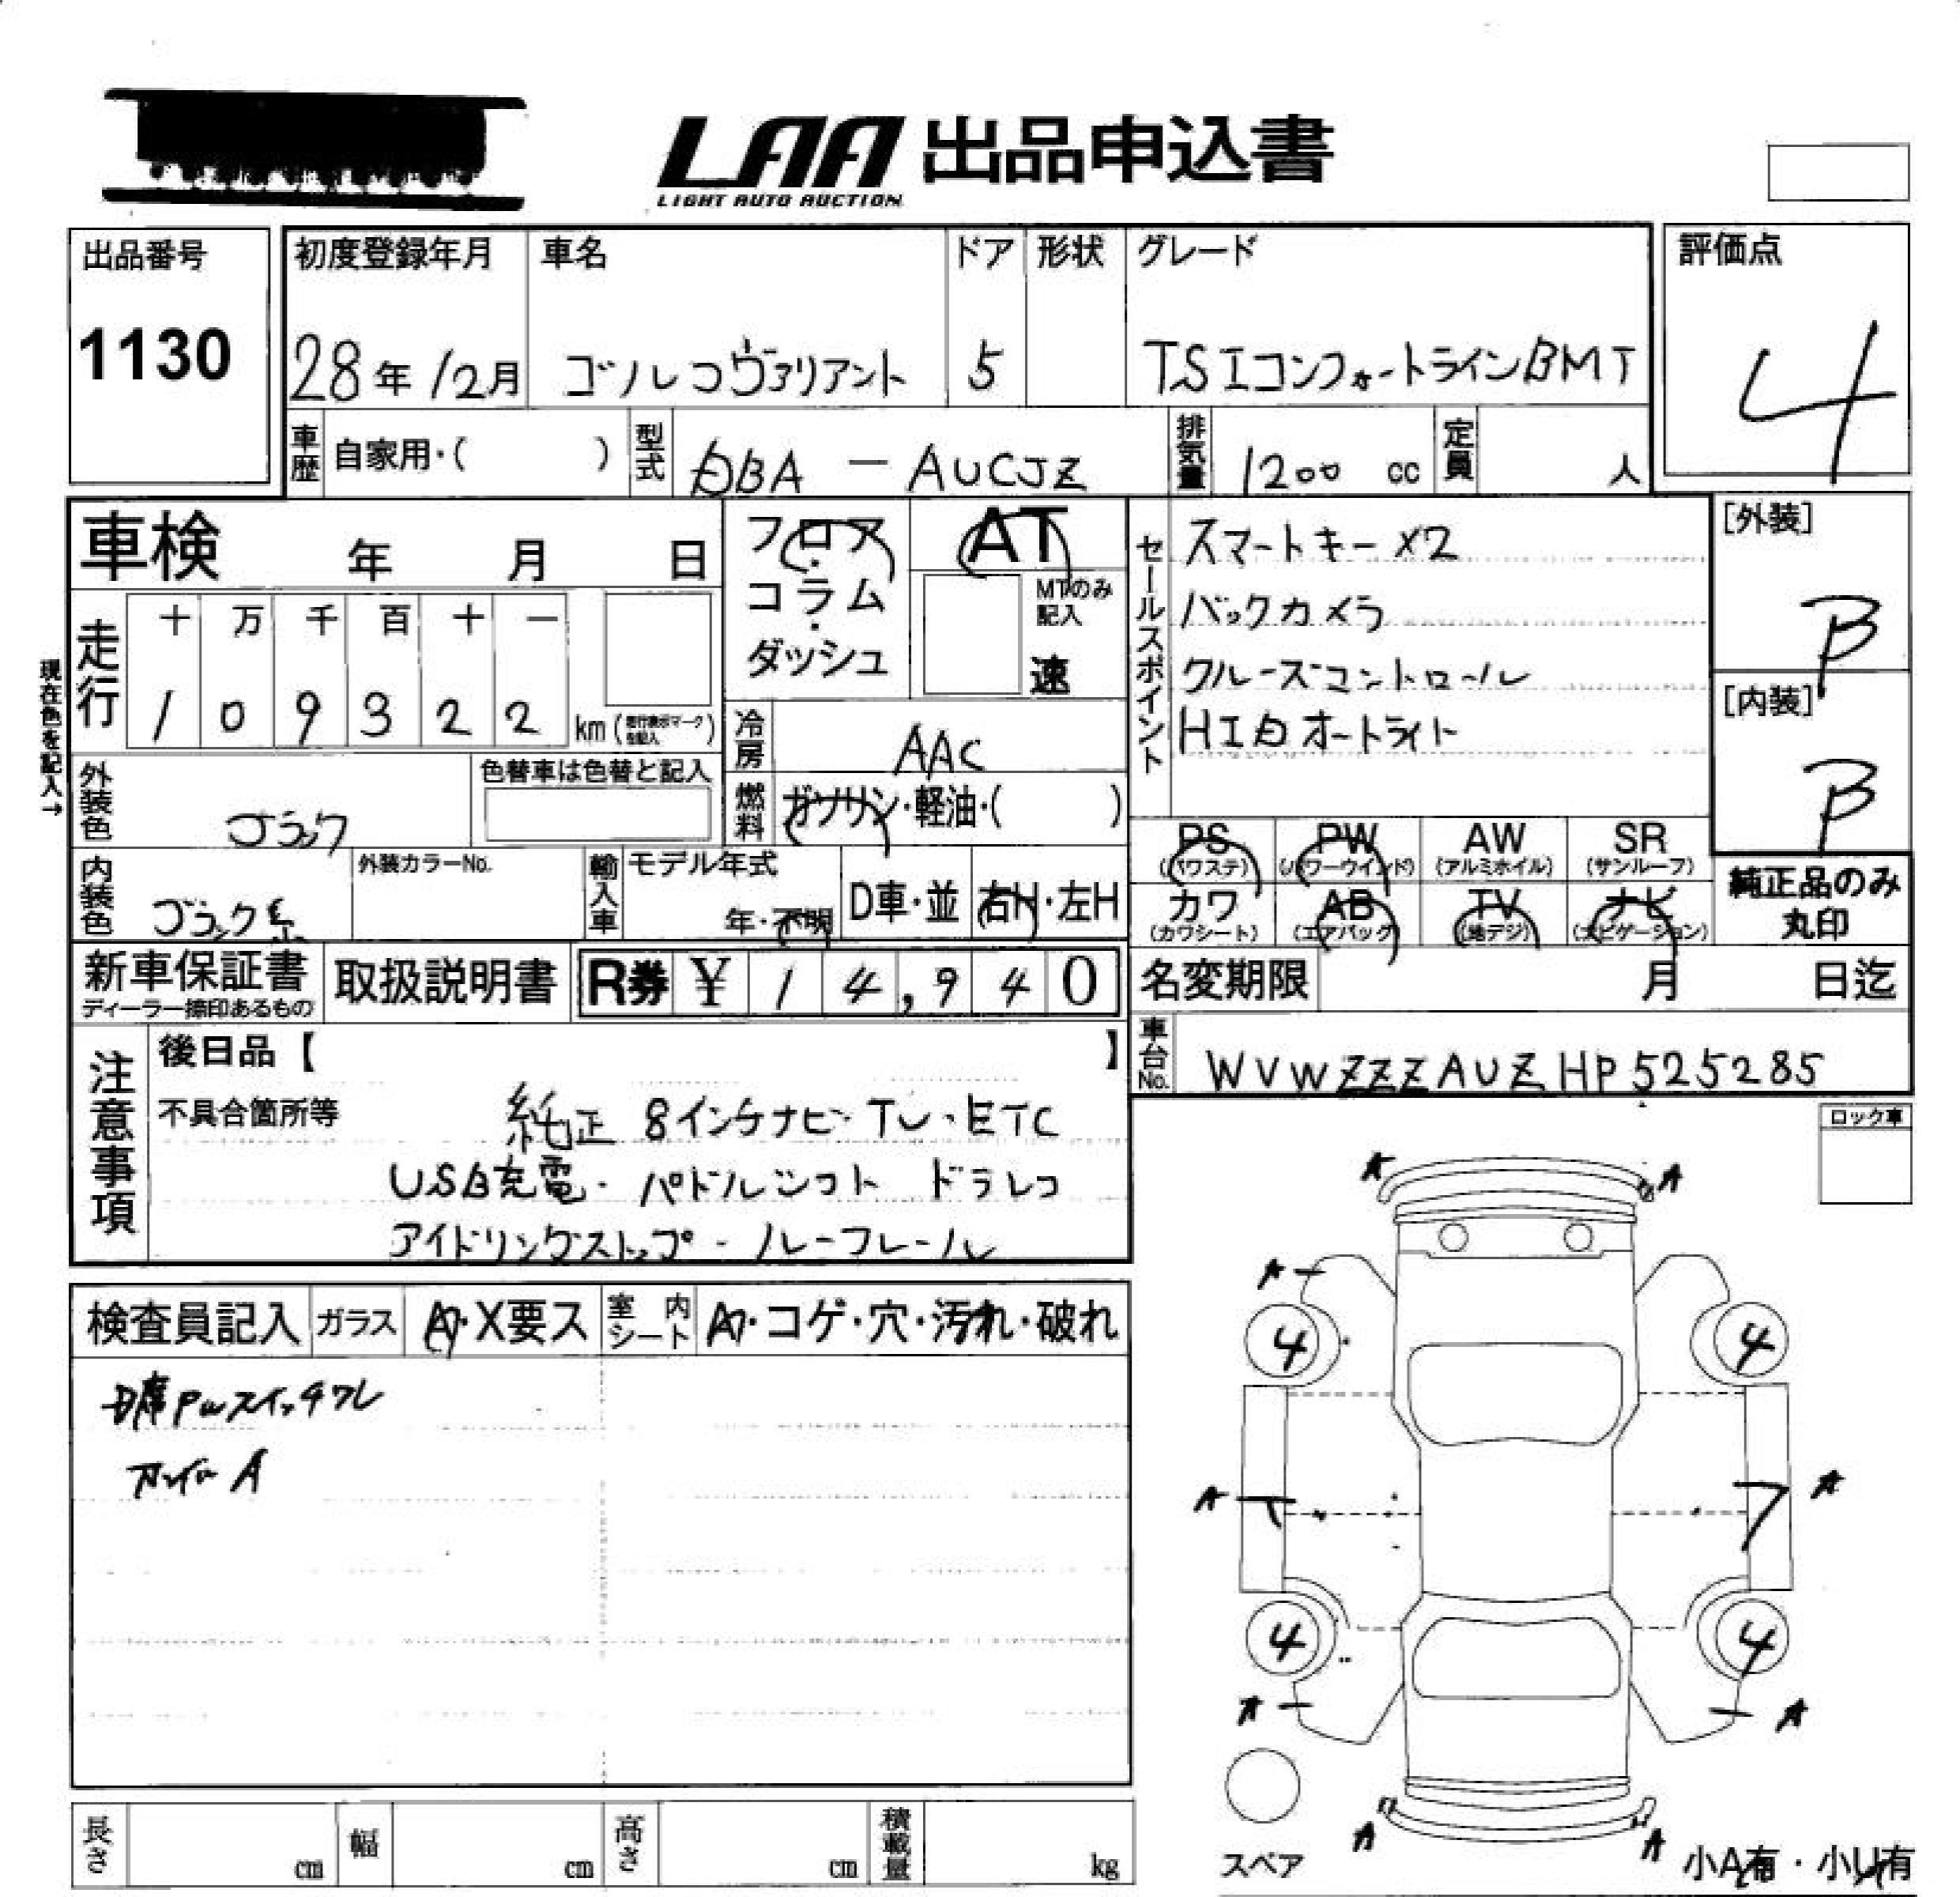 LAA 出品申込書
LIGHT AUTO AUCTION
出品番号 初度登録年月 車名 ドア 形状 グレード 評価点
1130 28年12月 ゴルフヴァリアント 5 TSIコンフォートラインBMT 4
車歴 自家用・( ) 型式 DBA - AUCJZ 排気量 1200 cc 定員 人
車検 年 月 日
フロア・コラム・ダッシュ
AT
MTのみ記入
速
セールスポイント
スマートキー×2
バックカメラ
クルーズコントロール
HIDオートライト
[外装]
B
[内装]
B
現在色を記入→
走行 十 万 千 百 十 一
1 0 9 3 2 2 km (走行表示マークを記入)
冷房 AAC
燃料 ガソリン・軽油・( )
外装色 ブラック
色替車は色替と記入
内装色 ブラック系
外装カラーNo.
輸入車 モデル年式
年・不明 D車・並 右H・左H
PS (パワステ) PW (パワーウインド) AW (アルミホイル) SR (サンルーフ)
カワ (カワシート) AB (エアバック) TV (地デジ) ナビ (ナビゲーション)
純正品のみ
丸印
新車保証書
ディーラー捺印あるもの
取扱説明書 R券 ¥ 14,940
名変期限 月 日迄
車台No. WVWZZZAUZHP525285
注意事項
後日品【 】
不具合箇所等 純正 8インチナビ・TV・ETC
USB充電・パドルシフト ドラレコ
アイドリングストップ・ルーフレール
ロック車
検査員記入 ガラス A・X要ス 室内シート A・コゲ・穴・汚れ・破れ
D席PWスイッチワレ
A
A A
A
4 4
A A
4 4
A A
A A
スペア
小A有・小U有
長さ cm 幅 cm 高さ cm 積載量 kg